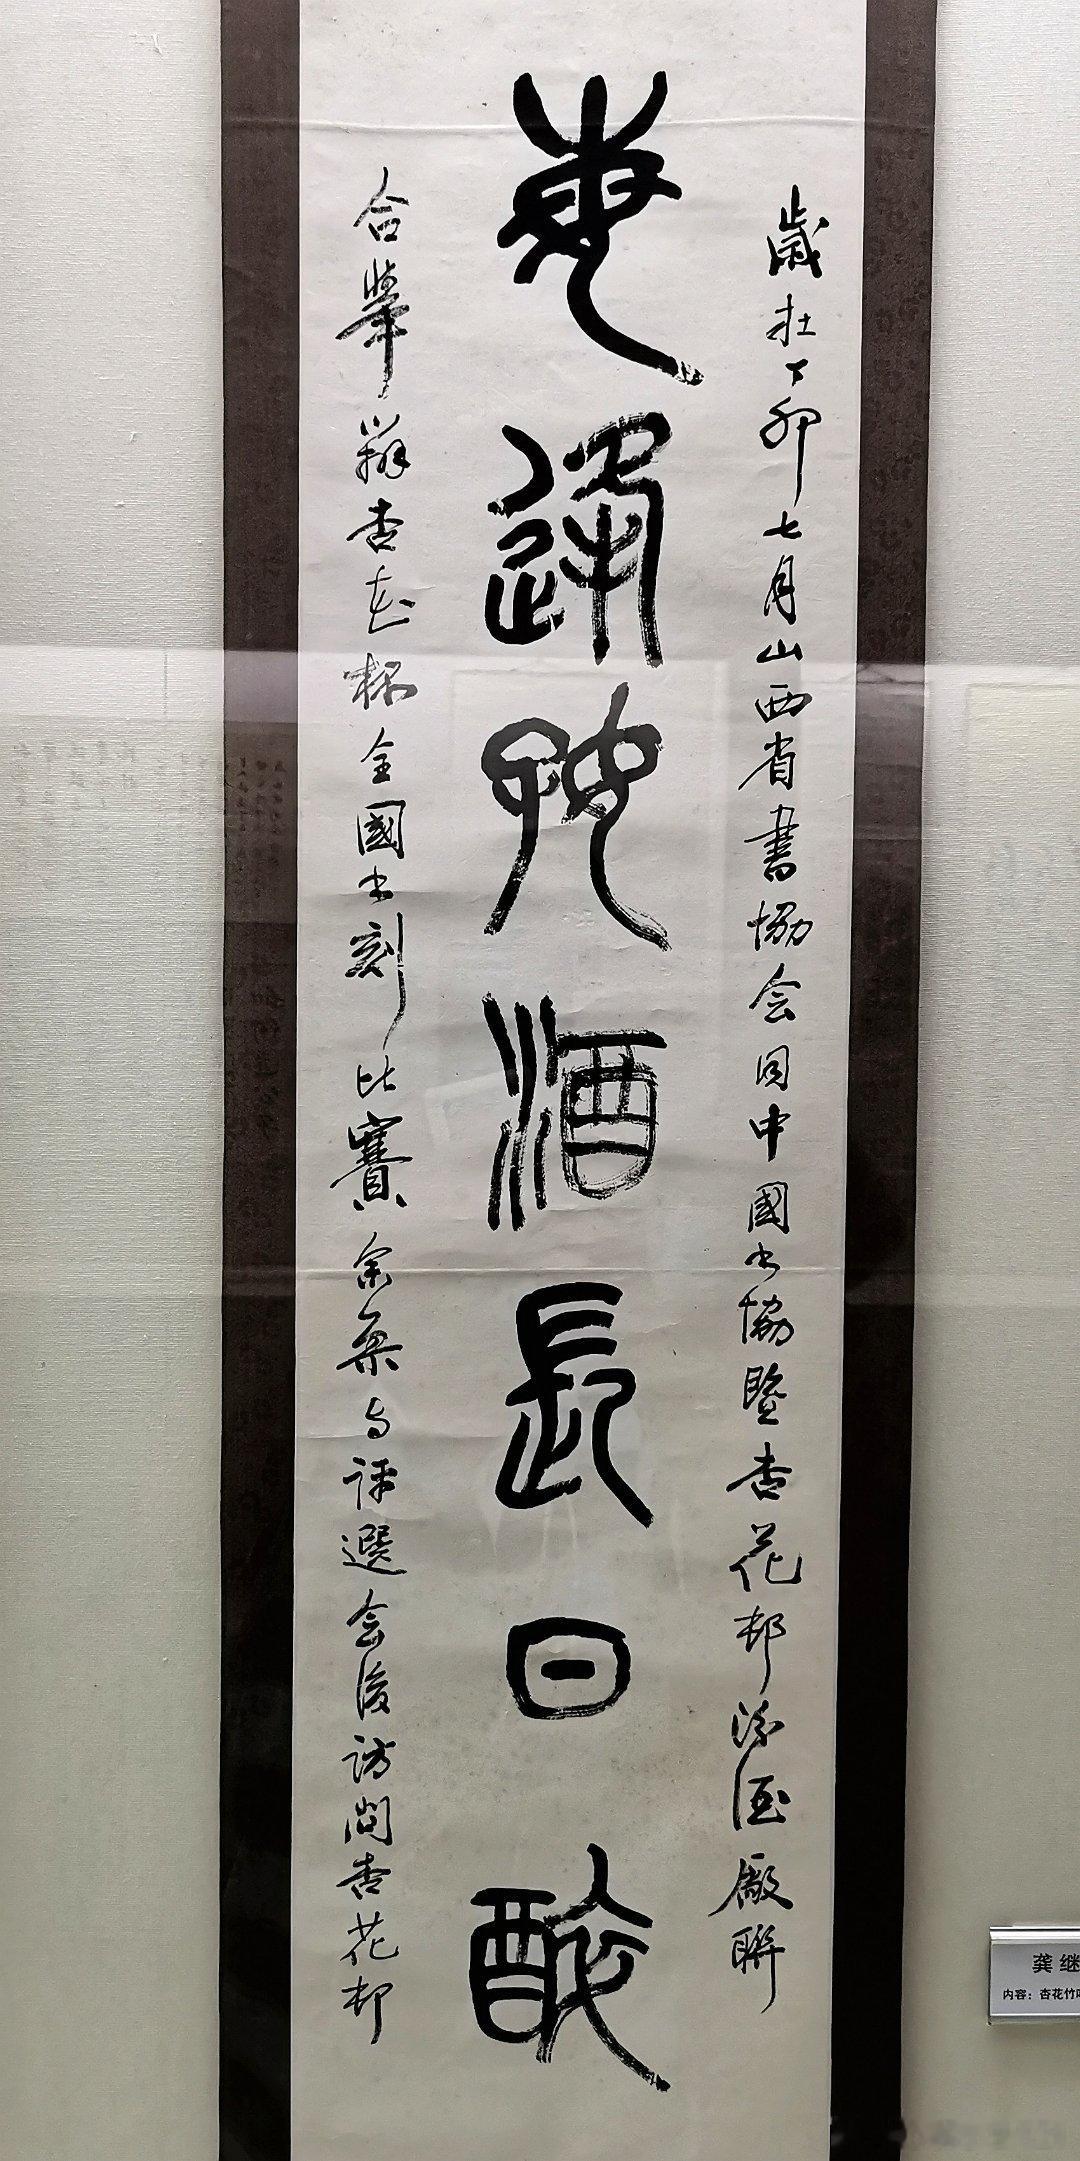 歲在丁卯七月山西省書協会同中國書協暨杏花邨汾酒廠聯
每逢好酒長日醉
合舉辦杏花杯全國書刻比賽余忝与評選会後訪問杏花邨
龚继
内容：杏花竹